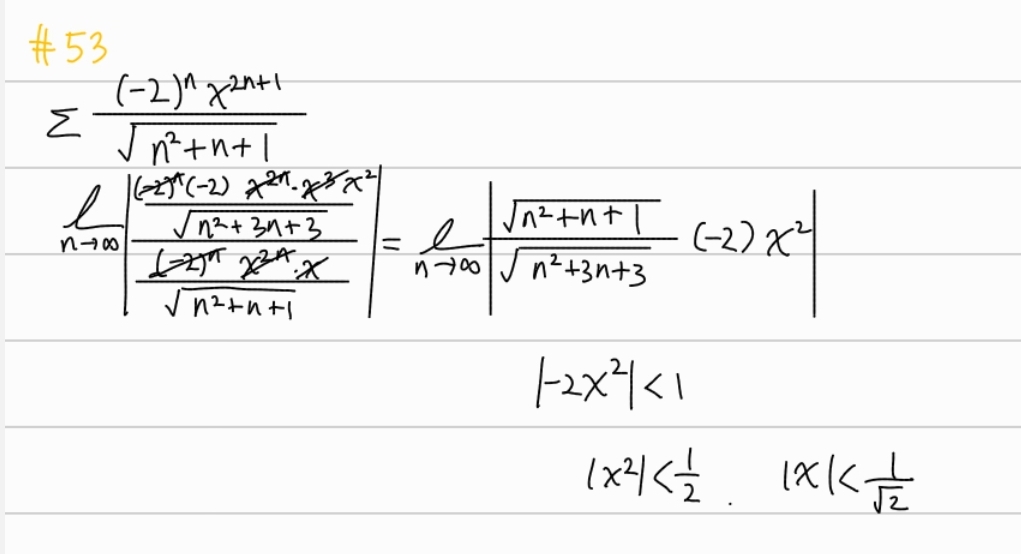 #53
Σ \frac{(-2)^n x^{2n+1}}{\sqrt{n^2+n+1}}
\lim_{n→∞} \left| \frac{\frac{(-2)^n (-2) x^{2n} \cdot x^3 x^2}{\sqrt{n^2+3n+3}}}{\frac{(-2)^n x^{2n} \cdot x}{\sqrt{n^2+n+1}}} \right| = \lim_{n→∞} \left| \frac{\sqrt{n^2+n+1}}{\sqrt{n^2+3n+3}} (-2) x^2 \right|
|-2x^2| < 1
|x^2| < \frac{1}{2} . |x| < \frac{1}{\sqrt{2}}